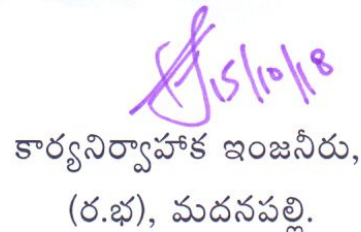 15/10/18
కార్యనిర్వాహక ఇంజనీరు,
(ర.భ), మదనపల్లి.